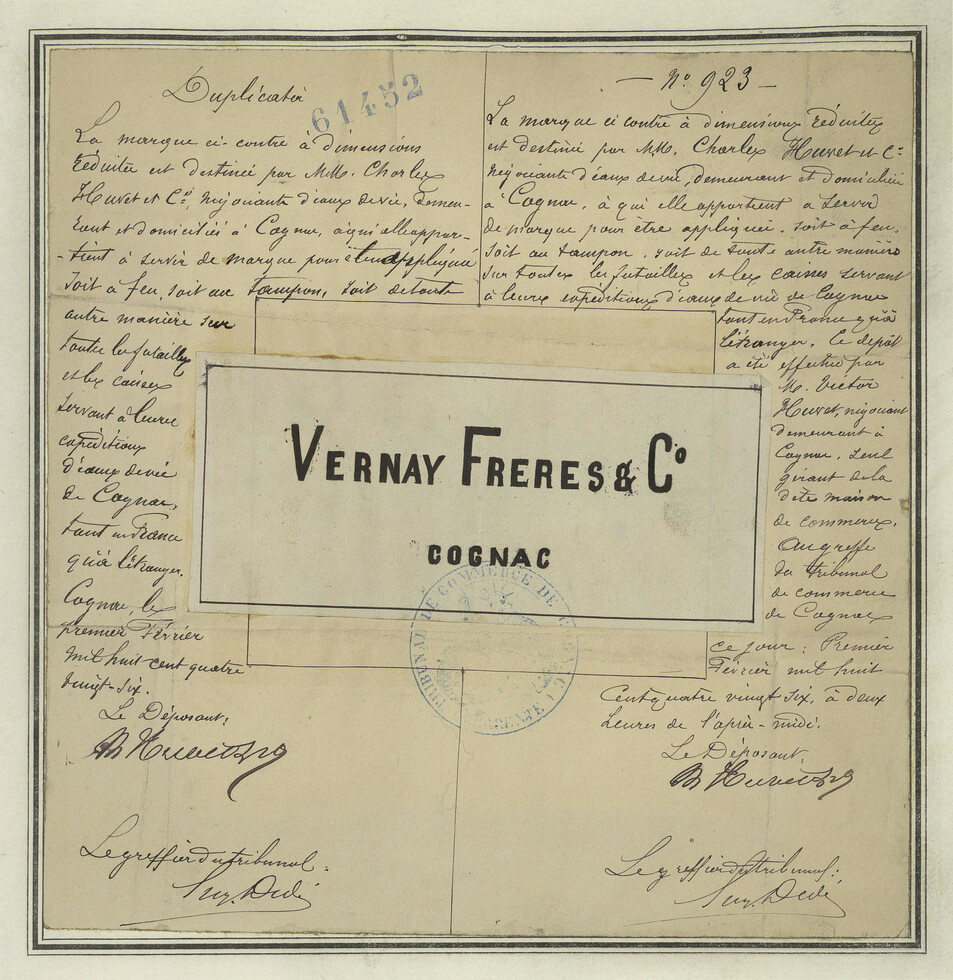 Duplicata
61452
La marque ci-contre à dimensions
réduites est destinée par M.M. Charles
Huvet et Cie, négociants d'eaux de vie, demeu-
rant et domiciliés à Cognac, à qui elle appar-
-tient à servir de marque pour être appliquée
soit à feu, soit au tampon, soit de toute
autre manière sur
toutes les futailles
et les caisses
servant à leurs
expéditions
d'eaux de vie
de Cognac,
tant en France
qu'à l'étranger.
Cognac, le
premier Février
mil huit cent quatre
vingt-six.
Le Déposant,
Le greffier du tribunal:
— No. 923 —
La marque ci contre à dimensions réduites
est destiné par M.M. Charles Huvet et Cie
négociants d'eaux de vie, demeurant et domiciliés
à Cognac, à qui elle appartient à servir
de marque pour être appliquée, soit à feu,
soit au tampon, soit de toute autre manière
sur toutes les futailles et les caisses servant
à leurs expéditions d'eaux de vie de Cognac
tant en France qu'à
l'étranger. Ce dépôt
a été effectué par
M. Victor
Huvet, négociant
demeurant à
Cognac, seul
gérant de la
dite maison
de commerce,
au greffe
du tribunal
de commerce
de Cognac
ce jour: Premier
Février mil huit
cent quatre vingt six, à deux
heures de l'après-midi.
Le Déposant,
Le greffier du tribunal:
VERNAY FRERES & Co
COGNAC
TRIBUNAL DE COMMERCE DE COGNAC